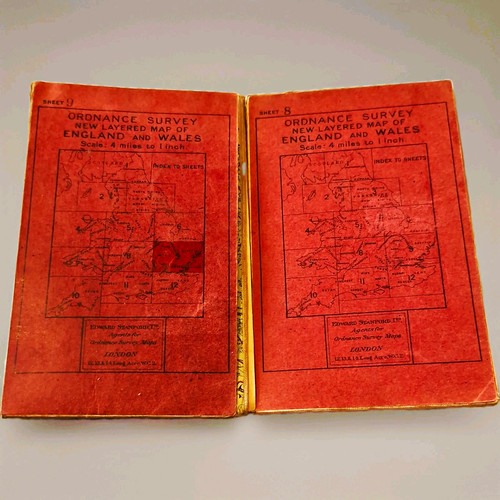 SHEET 9
ORDNANCE SURVEY
NEW LAYERED MAP OF
ENGLAND AND WALES
Scale: 4 miles to 1 Inch
INDEX TO SHEETS
2
5
10
11
12
EDWARD STANFORD, LTD.
Agents for
Ordnance Survey Maps
LONDON
12, 13, & 14, Long Acre, W.C.2.
SHEET 8
ORDNANCE SURVEY
NEW LAYERED MAP OF
ENGLAND AND WALES
Scale: 4 miles to 1 Inch
INDEX TO SHEETS
2
5
6
8
9
10
11
12
EDWARD STANFORD, LTD.
Agents for
Ordnance Survey Maps
LONDON
12, 13, & 14, Long Acre, W.C.2.